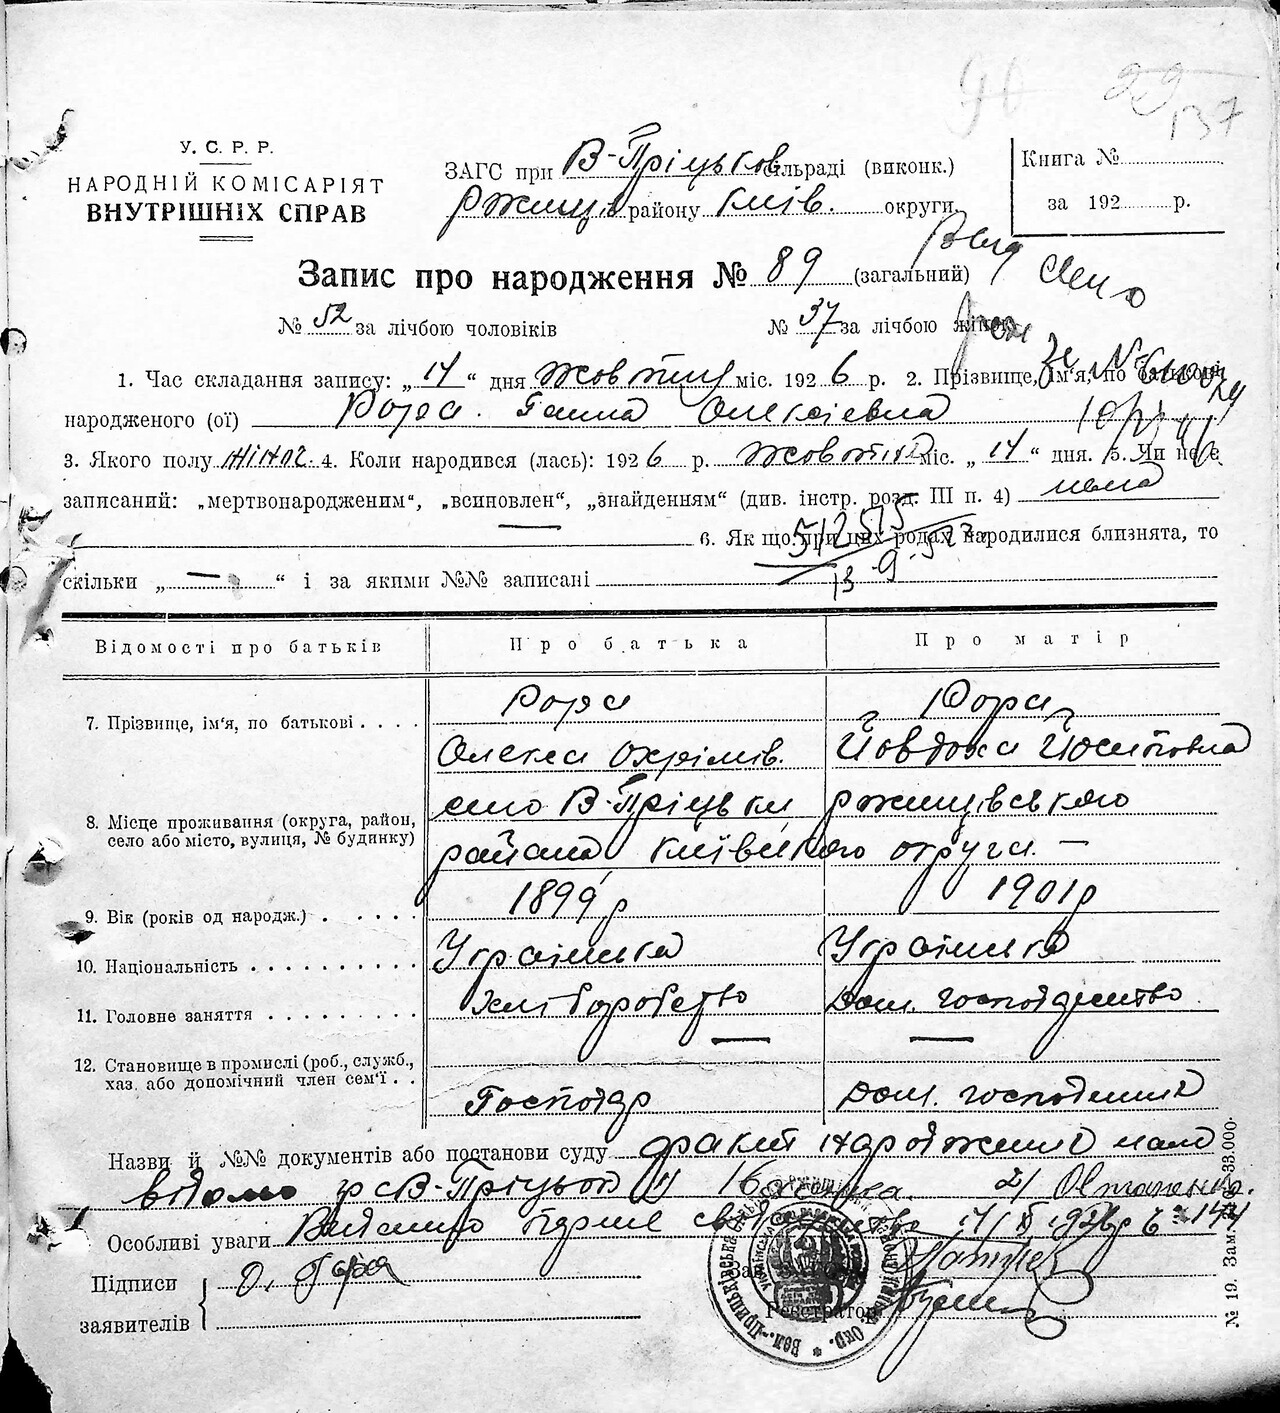 90 99
137
У. С. Р. Р.
НАРОДНІЙ КОМІСАРІЯТ
ВНУТРІШНІХ СПРАВ
ЗАГС при В-Пріцьков сільраді (виконк.)
Ржищів району Київ. округи
Книга №
за 192 р.
Запис про народження № 89 (загальний)
№ 52 за лічбою чоловіків № 37 за лічбою жінок
1. Час складання запису: „14“ дня жовтня міс. 1926 р. 2. Прізвище, ім'я, по батькові
народженого (ої) Гора Ганна Олексіевна
3. Якого полу жіноч. 4. Коли народився (лась): 1926 р. жовтня міс. „14“ дня. 5. Як не є
записаний: „мертвонародженим“, „всиновлен“, „знайденням“ (див. інстр. розд. III п. 4) нема
6. Як що при цих родах народилися близнята, то
512515
скільки „ — “ і за якими №№ записані
Відомості про батьків Про батька Про матір
7. Прізвище, ім'я, по батькові . . . . Гора Гора
Олекса Охрімів. Йовдоха Йосиповна
8. Місце проживання (округа, район, село або місто, вулиця, № будинку) село В-Пріцьки Ржищівського
района Київського округа. —
9. Вік (років од народж.) . . . . . 1899 р 1901 р
10. Національність . . . . . . . . . . Українська Українка
11. Головне заняття . . . . . . . . . Хліборобство Дом. господарство
12. Становище в промислі (роб., служб., хаз. або допомічний член сем'ї . .
Господар Дом. господиня
Назви й №№ документів або постанови суду факт народження мало
відомо
Особливі уваги Видано перше свідоцтво
Підписи заявителів О. Гора
Реєстратор
Вел.-Прицьківська
Окр.
№ 19. Зам. 33.000.